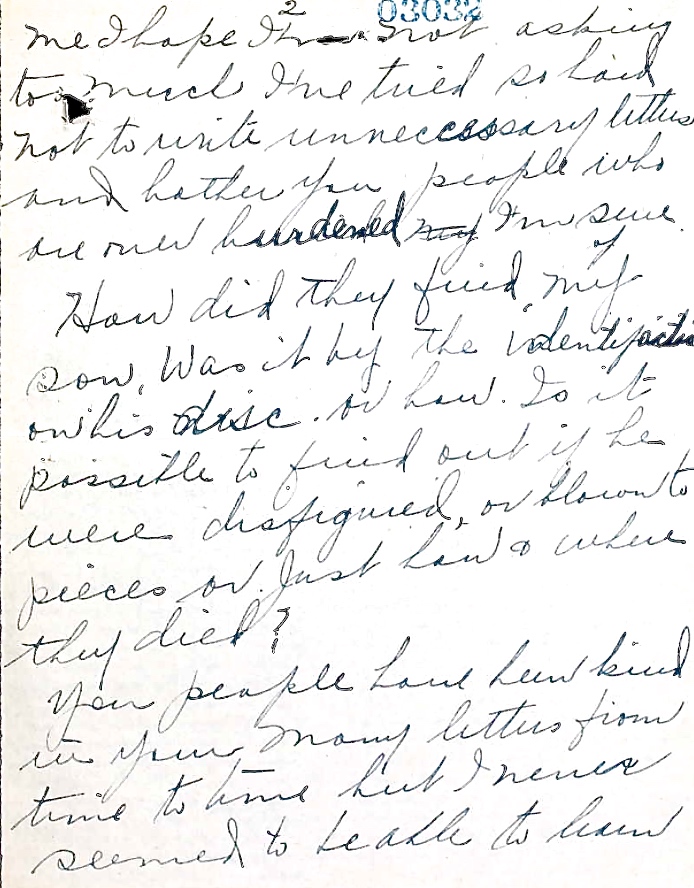 2
03032
me I hope I'm not asking
too much I've tried so hard
not to write unneccessary letters
and bother you people who
are over burdened my I'm sure.
How did they find, my of
son, Was it by the identifactio
on his disc. or how. Is it
possible to find out if he
were disfigured, or blown to
pieces or. Just how & where
they died?
You people have been kind
in your many letters from
time to time but I never
seemed to be able to learn